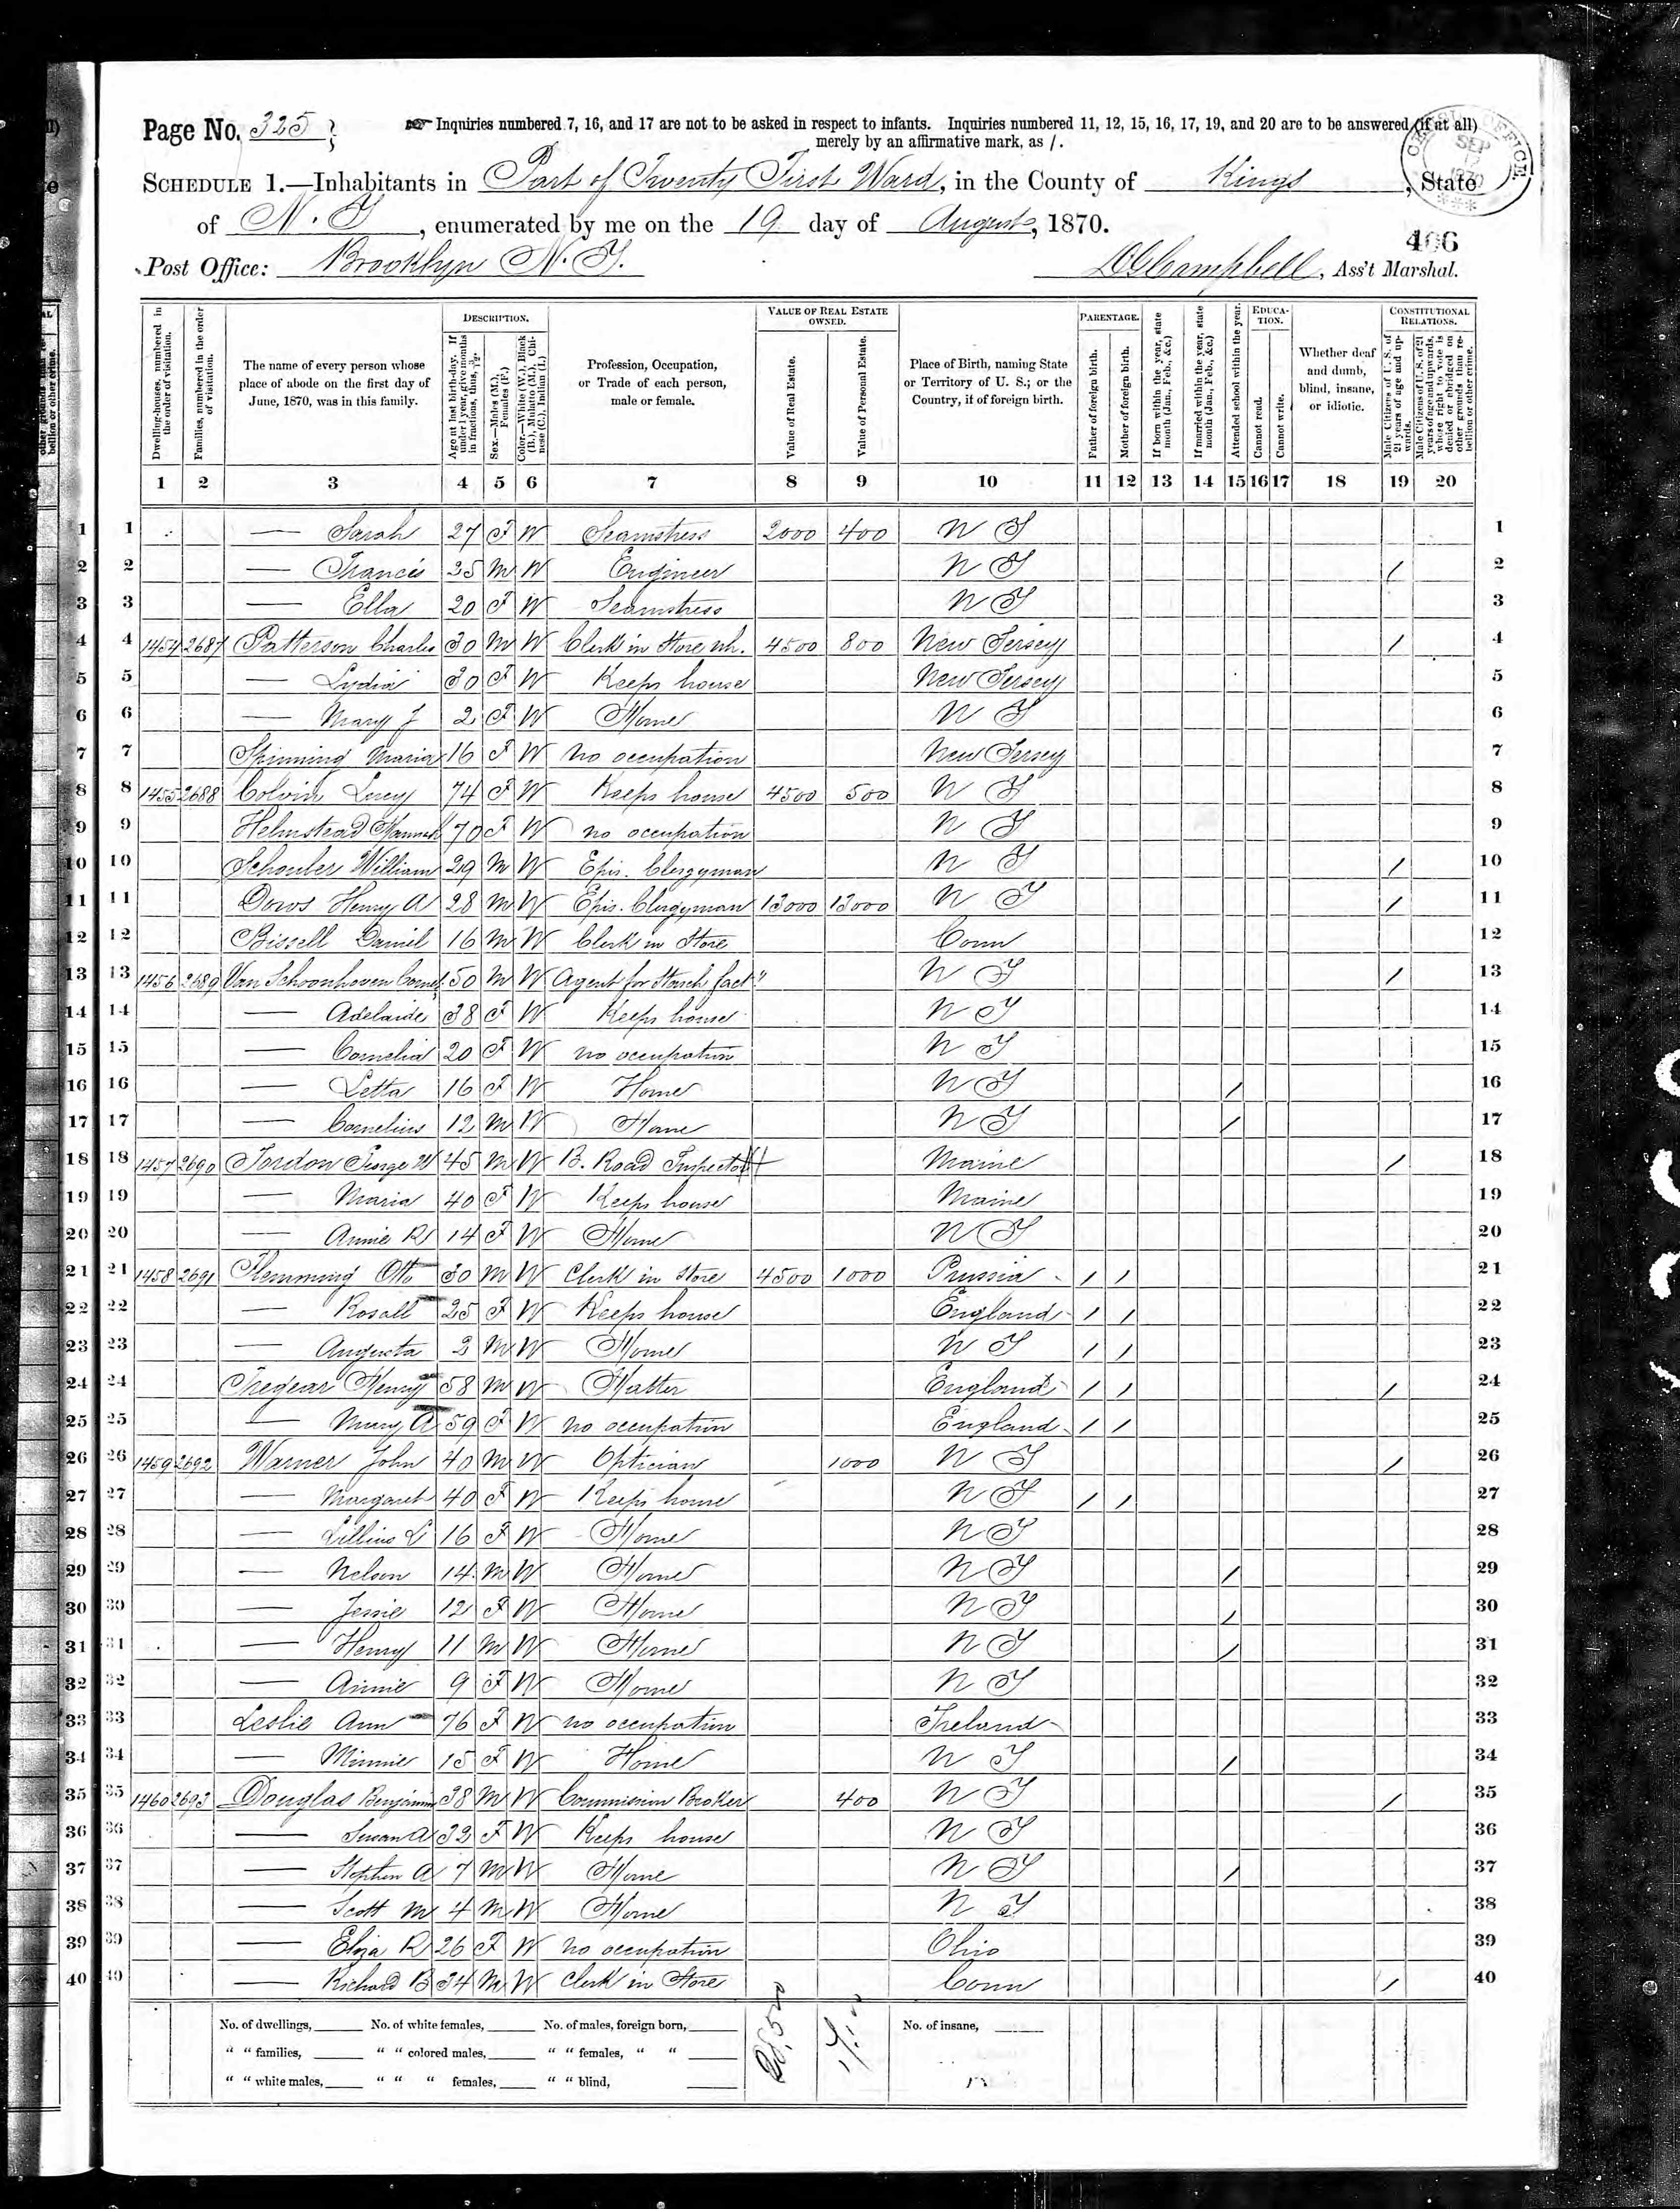 Page No. 325
Inquiries numbered 7, 16, and 17 are not to be asked in respect to infants. Inquiries numbered 11, 12, 15, 16, 17, 19, and 20 are to be answered (if at all)
merely by an affirmative mark, as /.
SCHEDULE 1.—Inhabitants in Part of Twenty First Ward, in the County of Kings, State
of N. Y, enumerated by me on the 19 day of August, 1870.
406
Post Office: Brooklyn N. Y.
Campbell, Ass't Marshal.
Dwelling-houses, numbered in the order of visitation.
Families, numbered in the order of visitation.
The name of every person whose place of abode on the first day of June, 1870, was in this family.
DESCRIPTION.
Age at last birth-day. If under 1 year, give months in fractions, thus, 3/12.
Sex.—Males (M.), Females (F.)
Color.—White (W.), Black (B.), Mulatto (M.), Chinese (C.), Indian (I.)
Profession, Occupation, or Trade of each person, male or female.
VALUE OF REAL ESTATE OWNED.
Value of Real Estate.
Value of Personal Estate.
Place of Birth, naming State or Territory of U. S.; or the Country, if of foreign birth.
PARENTAGE.
Father of foreign birth.
Mother of foreign birth.
If born within the year, state month (Jan., Feb., &c.)
If married within the year, state month (Jan., Feb., &c.)
Attended school within the year.
EDUCATION.
Cannot read.
Cannot write.
Whether deaf and dumb, blind, insane, or idiotic.
CONSTITUTIONAL RELATIONS.
Male Citizens of U. S. of 21 years of age and upwards.
Male Citizens of U. S. of 21 years of age and upwards, whose right to vote is denied or abridged on other grounds than rebellion or other crime.
1 2 3 4 5 6 7 8 9 10 11 12 13 14 15 16 17 18 19 20
1 1 — Sarah 27 F W Seamstress 2000 400 N Y 1
2 2 — Francis 35 M W Engineer N Y / 2
3 3 — Ella 20 F W Seamstress N Y 3
4 4 1454 2687 Patterson Charles 30 M W Clerk in Store wh. 4500 800 New Jersey / 4
5 5 — Lydia 30 F W Keeps house New Jersey 5
6 6 — Mary J 2 F W Home N Y 6
7 7 Spinning Maria 16 F W no occupation New Jersey 7
8 8 1455 2688 Colvin Lucy 74 F W Keeps house 4500 500 N Y 8
9 9 Helmstead Hannah 70 F W no occupation N Y 9
10 10 Schouler William 29 M W Epis. Clergyman N Y / 10
11 11 Dows Henry A 28 M W Epis. Clergyman 13000 13000 N Y / 11
12 12 Bissell Daniel 16 M W Clerk in Store Conn 12
13 13 1456 2689 Van Schoonhoven Cornel. 50 M W Agent for Starch fact" N Y / 13
14 14 — Adelaide 38 F W Keeps house N Y 14
15 15 — Cornelia 20 F W no occupation N Y 15
16 16 — Letta 16 F W Home N Y / 16
17 17 — Cornelius 12 M W Home N Y / 17
18 18 1457 2690 Jordon George W 45 M W B. Road Inspector Maine / 18
19 19 — Maria 40 F W Keeps house Maine 19
20 20 — Annie R 14 F W Home N Y 20
21 21 1458 2691 Flemming Otto 30 M W Clerk in Store 4500 1000 Prussia / / 21
22 22 — Rosall 25 F W Keeps house England / / 22
23 23 — Augusta 2 M W Home N Y / / 23
24 24 Tregear Henry 58 M W Hatter England / / / 24
25 25 — Mary A 59 F W no occupation England / / 25
26 26 1459 2692 Warner John 40 M W Optician 1000 N Y / 26
27 27 — Margaret 40 F W Keeps house N Y / / 27
28 28 — Lillius L 16 F W Home N Y 28
29 29 — Nelson 14 M W Home N Y / 29
30 30 — Jessie 12 F W Home N Y / 30
31 31 — Henry 11 M W Home N Y / 31
32 32 — Annie 9 F W Home N Y 32
33 33 Leslie Ann 76 F W no occupation Ireland 33
34 34 — Minnie 15 F W Home N Y / 34
35 35 1460 2693 Douglas Benjamin 38 M W Commission Broker 400 N Y / 35
36 36 — Susan A 32 F W Keeps house N Y 36
37 37 — Stephen A 7 M W Home N Y / 37
38 38 — Scott M 4 M W Home N Y 38
39 39 — Eliza R 26 F W no occupation Ohio 39
40 40 — Richard B 34 M W Clerk in Store Conn / 40
No. of dwellings, No. of white females, No. of males, foreign born, No. of insane,
" " families, " " colored males, " " females, " "
" " white males, " " " females, " " blind,